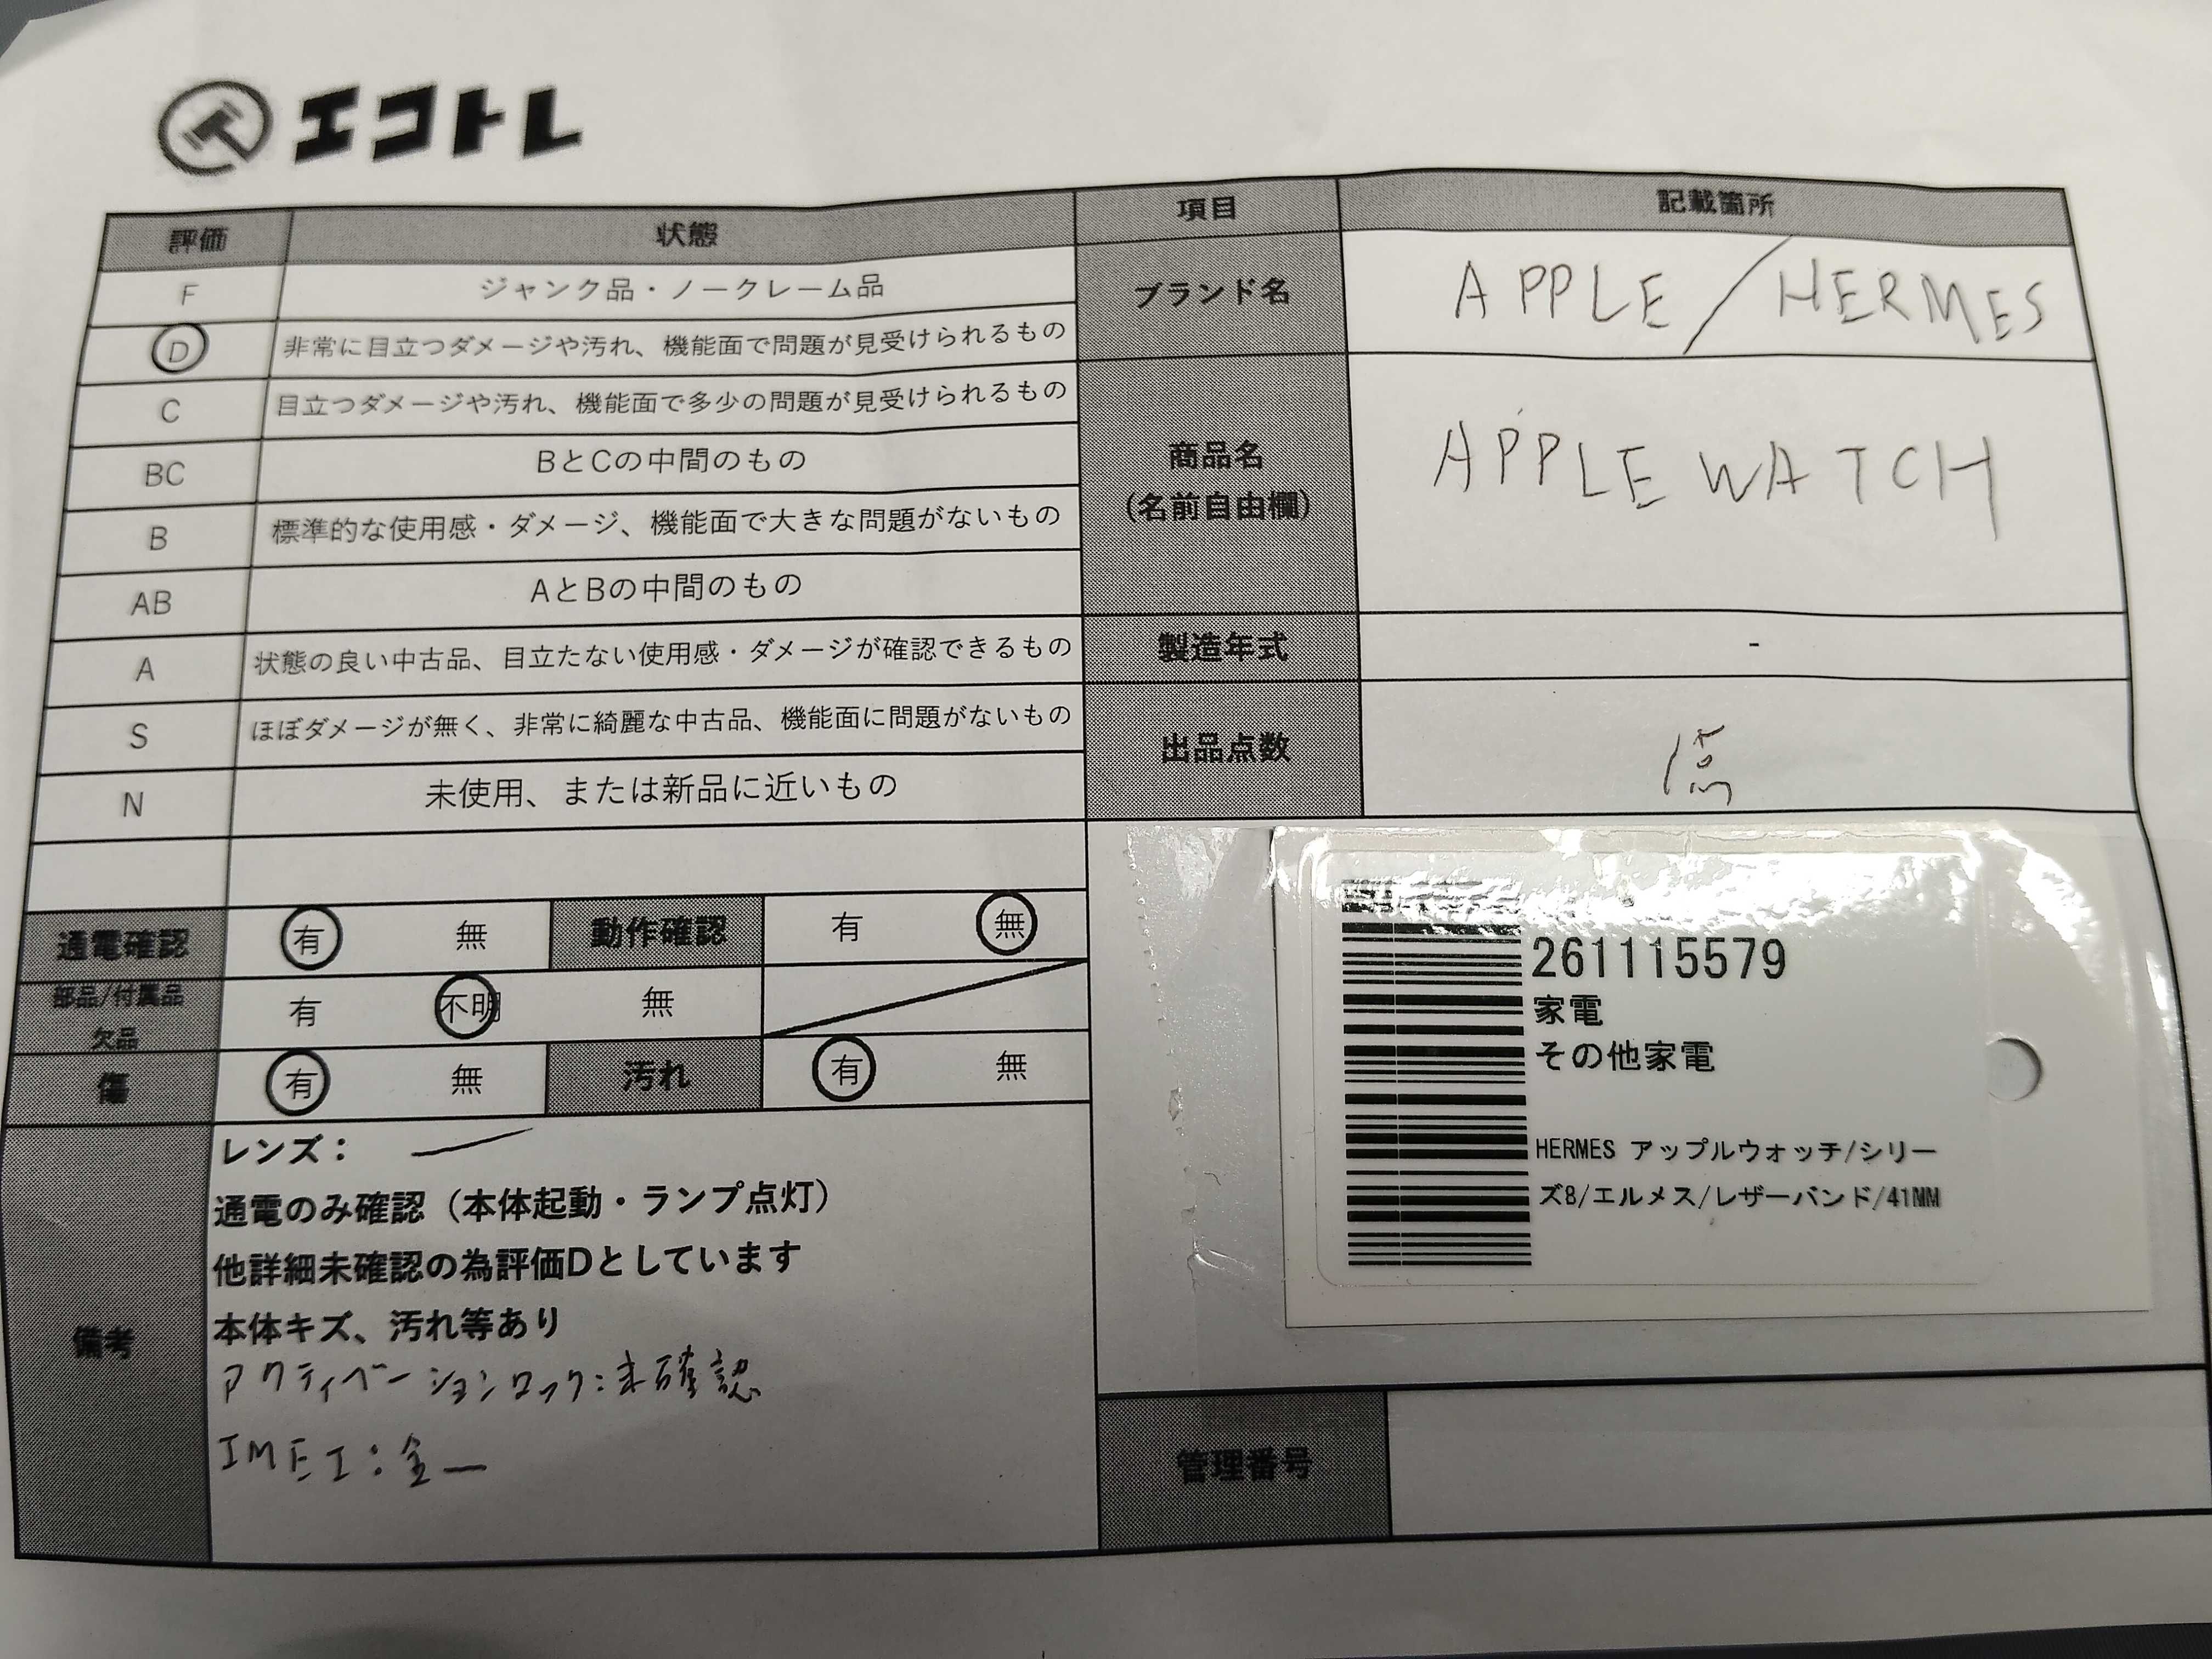 エコトレ
評価 状態 項目 記載箇所
F ジャンク品・ノークレーム品
D 非常に目立つダメージや汚れ、機能面で問題が見受けられるもの
C 目立つダメージや汚れ、機能面で多少の問題が見受けられるもの
BC BとCの中間のもの
B 標準的な使用感・ダメージ、機能面で大きな問題がないもの
AB AとBの中間のもの
A 状態の良い中古品、目立たない使用感・ダメージが確認できるもの
S ほぼダメージが無く、非常に綺麗な中古品、機能面に問題がないもの
N 未使用、または新品に近いもの
ブランド名 APPLE/HERMES
商品名
(名前自由欄)
APPLE WATCH
製造年式 -
出品点数 1点
通電確認 有 無 動作確認 有 無
部品/付属品
欠品
有 不明 無
傷 有 無 汚れ 有 無
備考
レンズ：
通電のみ確認（本体起動・ランプ点灯）
他詳細未確認の為評価Dとしています
本体キズ、汚れ等あり
アクティベーションロック:未確認
IMEI:
261115579
家電
その他家電
HERMES アップルウォッチ/シリー
ズ8/エルメス/レザーバンド/41MM
管理番号